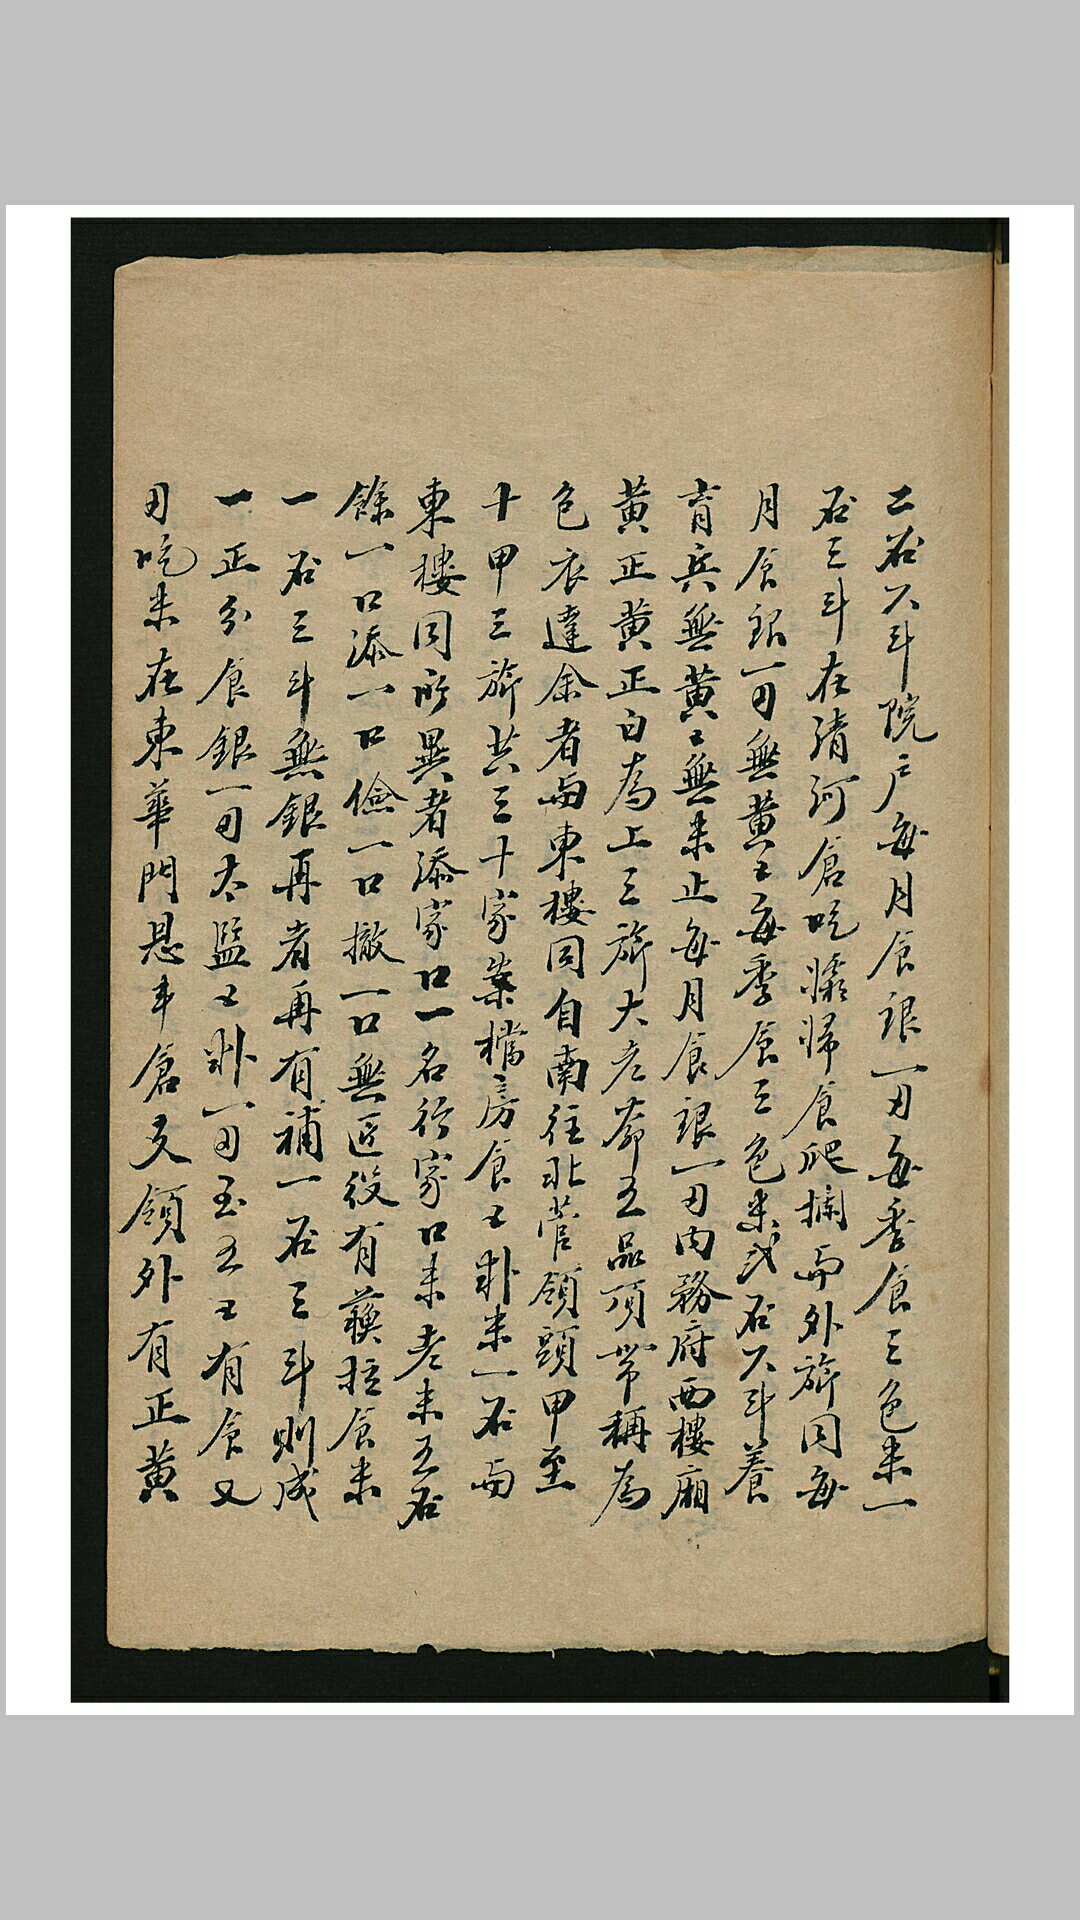 二石六斗院戶每月食銀一两每季食三色米一
石三斗在清河倉吃歸食爬攔與外旂同每
月食銀一两無黃每季食三色米弍石六斗養
育兵無黃無米止每月食銀一两内務府西樓廂
黃正黃正白為上三旂大老爺五品頂帶稱為
色衣達余者與東樓同自南往北管領頭甲至
十甲三旂共三十家案檔房食米一石與
東樓同所異者添家口一名行家口米老米五石
餘一口添一口儉一口撤一口無匠役有食米
一石三斗無銀再者再有補一石三斗則成
一正分食銀一两太監一两至五有食又
两吃米在東華門恩丰倉支領外有正黃